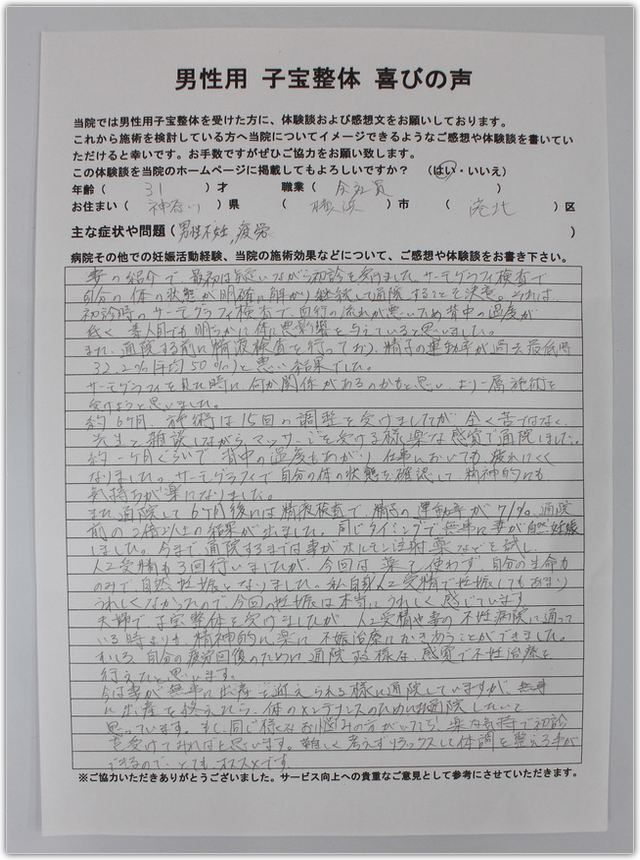 男性用 子宝整体 喜びの声
当院では男性用子宝整体を受けた方に、体験談および感想文をお願いしております。
これから施術を検討している方へ当院についてイメージできるようなご感想や体験談を書いてい
ただけると幸いです。お手数ですがぜひご協力をお願い致します。
この体験談を当院のホームページに掲載してもよろしいですか? (はい・いいえ)
年齢( 31 )才 職業( 会社員 )
お住まい( 神奈川 )県 ( 横浜 )市 ( 港北 )区
主な症状や問題( 男性不妊,疲労 )
病院その他での妊娠活動経験、当院の施術効果などについて、ご感想や体験談をお書き下さい。
妻の紹介で最初は疑いながら初診を受けました。サーモグラフィ検査で
自分の体の状態が明確に解かり継続して通院することを決意。それは
初診時のサーモグラフィ検査で、血行の流れが悪いため背中の温度が
低く 素人目でも明らかに体に悪影響を与えていると思いました。
また、通院する前に精液検査を行っており、精子の運動率が過去最低時
32.2%(平均50%)と悪い結果でした。
サーモグラフィを見た時に何か関係があるのかもと思い、より一層施術を
受けようと思いました。
約6ヶ月、施術は15回の調整を受けましたが全く苦ではなく、
先生と雑談しながらマッサージを受ける様な楽な感覚で通院しました。
約一ヶ月ぐらいで背中の温度もあがり仕事においても疲れにくく
なりました。サーモグラフィで自分の体の状態を確認して精神的にも
気持ちが楽になりました。
また通院して6ヶ月後には精液検査で、精子の運動率が71%。通院
前の2倍以上の結果が出ました。同じタイミングで無事に妻が自然妊娠
しました。今まで、通院するまでは妻がホルモン注射、薬などを試し、
人工受精も3回行いましたが、今回は薬を使わず、自分の生命力
のみで自然妊娠となりました。私自身人工受精で妊娠してもあまり
うれしくなかったので、今回の妊娠は本当にうれしく感じています
夫婦で子宝整体を受けましたが、人工受精や妻の不妊病院に通って
いる時よりも、精神的に楽に不妊治療にむきあうことができました。
むしろ、自分の疲労回復のために通院する様な感覚で不妊治療を
行えたと思います。
今は妻が無事に出産を迎えられる様に通院していますが、無事
に出産を終えたら、体のメンテナンスのために通院したいと
思っています。もし、同じ様なお悩みの方がいたら、楽な気持で初診
を受けてみればと思います。難しく考えずリラックスして体調を整える事が
できるので、とてもオススメです。
※ご協力いただきありがとうございました。サービス向上への貴重なご意見として参考にさせていただきます。